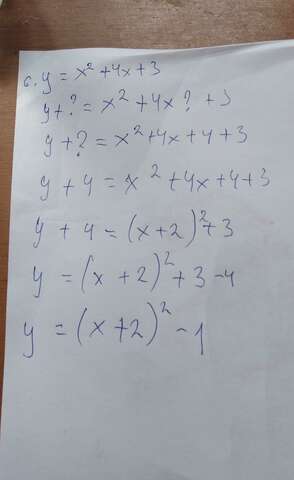 6. y = x² + 4x + 3
y + ? = x² + 4x ? + 3
y + ? = x² + 4x + 4 + 3
y + 4 = x² + 4x + 4 + 3
y + 4 = (x + 2)² + 3
y = (x + 2)² + 3 - 4
y = (x + 2)² - 1